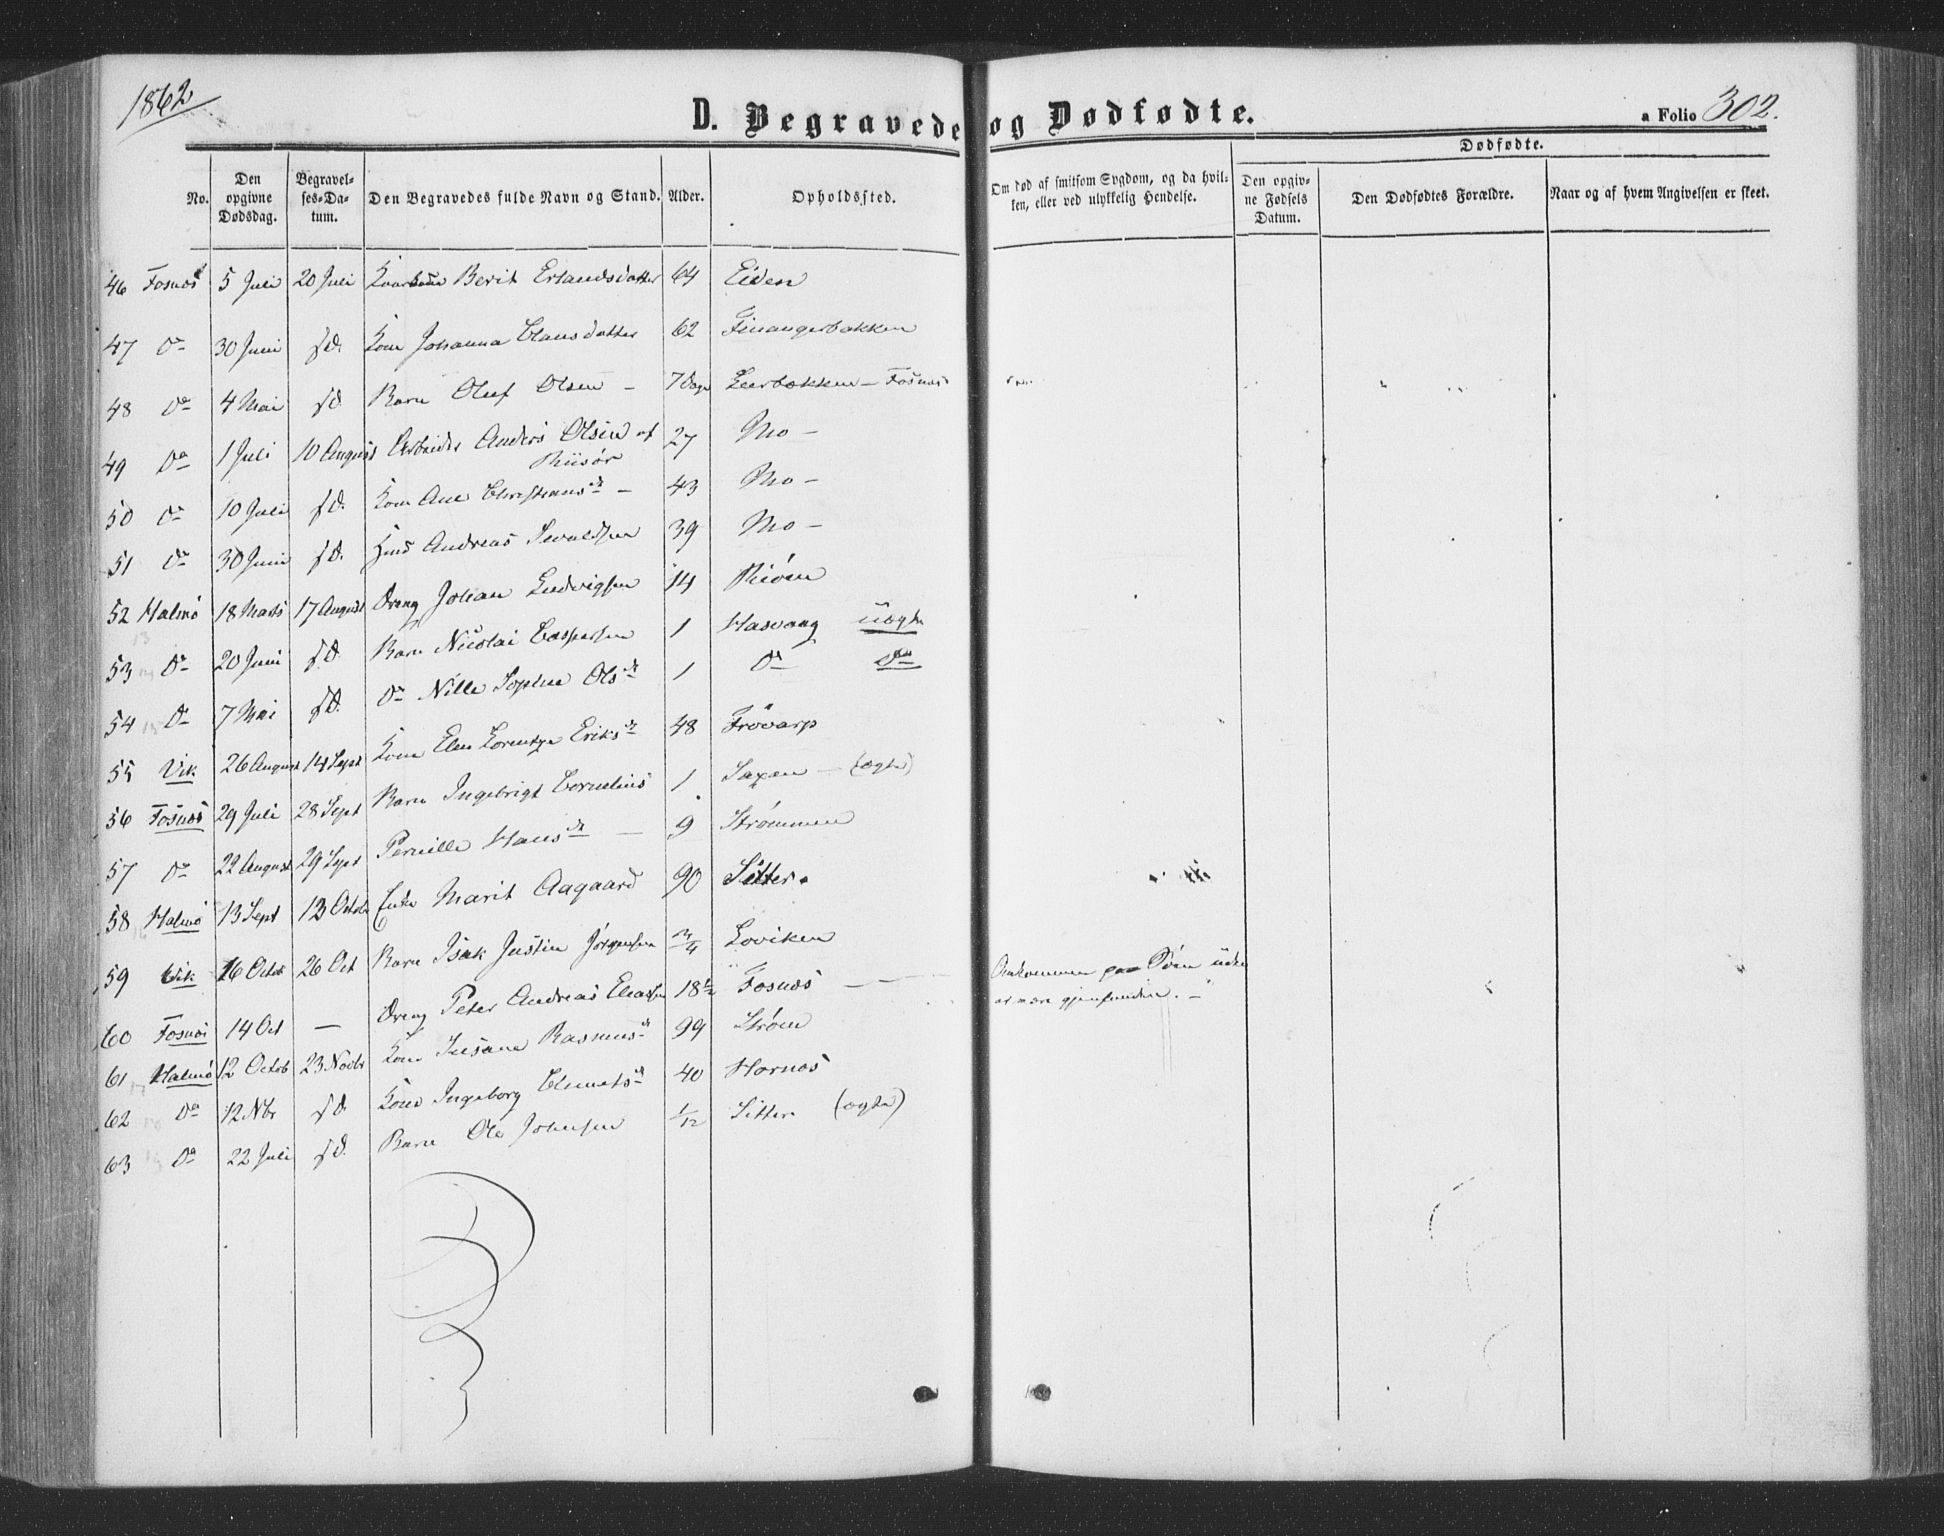 1862
D. Begravede og Dødfødte.
a Folio 302.
Dødfødte.
No.
Den opgivne Dødsdag.
Begravelses-Datum.
Den Begravedes fulde Navn og Stand.
Alder.
Opholdssted.
Om død af smitsom Sygdom, og da hvilken, eller ved ulykkelig Hendelse.
Den opgivne Fødsels Datum.
Den Dødfødtes Forældre.
Naar og af hvem Angivelsen er skeet.
46 Fosnæs 5 Juli 20 Juli Berit Erlandsdatter 64 Eiden
47 Do 30 Juni s.D. Kone Johanna Clausdatter 62 Finangerbakken
48 Do 4 Mai s.D. Barn Oluf Olsen – 7 Dage Leerbakken – Fosnæs
49 Do 1 Juli 10 August Arbeider Anders Olsen af Riisør 27 Mo –
50 Do 10 Juli s.D. Kone Ane Christiansdr – 43 Mo –
51 Do 30 Juni s.D. Andreas Sevaldsen 39 Mo –
52 Halmø 18 Marts 17 August Dreng Johan Ludvigsen 14
53 Do 20 Juni s.D. Barn Nicolai Caspersen 1 Hasvaag uægte
54 Do 7 Mai s.D. Do Nille Sophie Olsdr 1 Do Do
55 Vik 26 August 14 Sept Kone Elen Lorentze Eriksdr 48 Frøvarp
56 Fosnæs 29 Juli 28 Sept Barn Ingebrigt Cornelius 1 Saxen – (ægte)
57 Do 22 August 29 Sept Pernille Hansdr – 9 Strømmen
58 Halmø 13 Sept 13 Octobr Enke Marit Aagaard 90 Sitter.
59 Vik 16 Octob 26 Oct Barn Isak Justin Jørgensen 3/4 Loviken
60 Fosnæs 14 Oct – Dreng Peter Andreas Eliassen 18 1/2 Fosnæs – – Omkommen paa Søen uden
at være gjenfunden. –
61 Halmø 12 Octob 23 Novbr Kone Susana Rasmusdr 99 Strøm
62 Do 12 Nbr s.D. Kone Ingeborg Clemetsdr 40 Hornæs
63 Do 22 Juli s.D. Barn Ole Johnsen 1/12 Sitter (ægte)